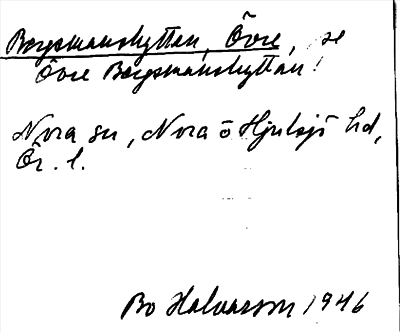 Bergsmanshyttan, Övre, se
Övre Bergsmanshyttan!
Nora sn, Nora o Hjulsjö hd,
Ör. l.
Bo Halvarson 1946